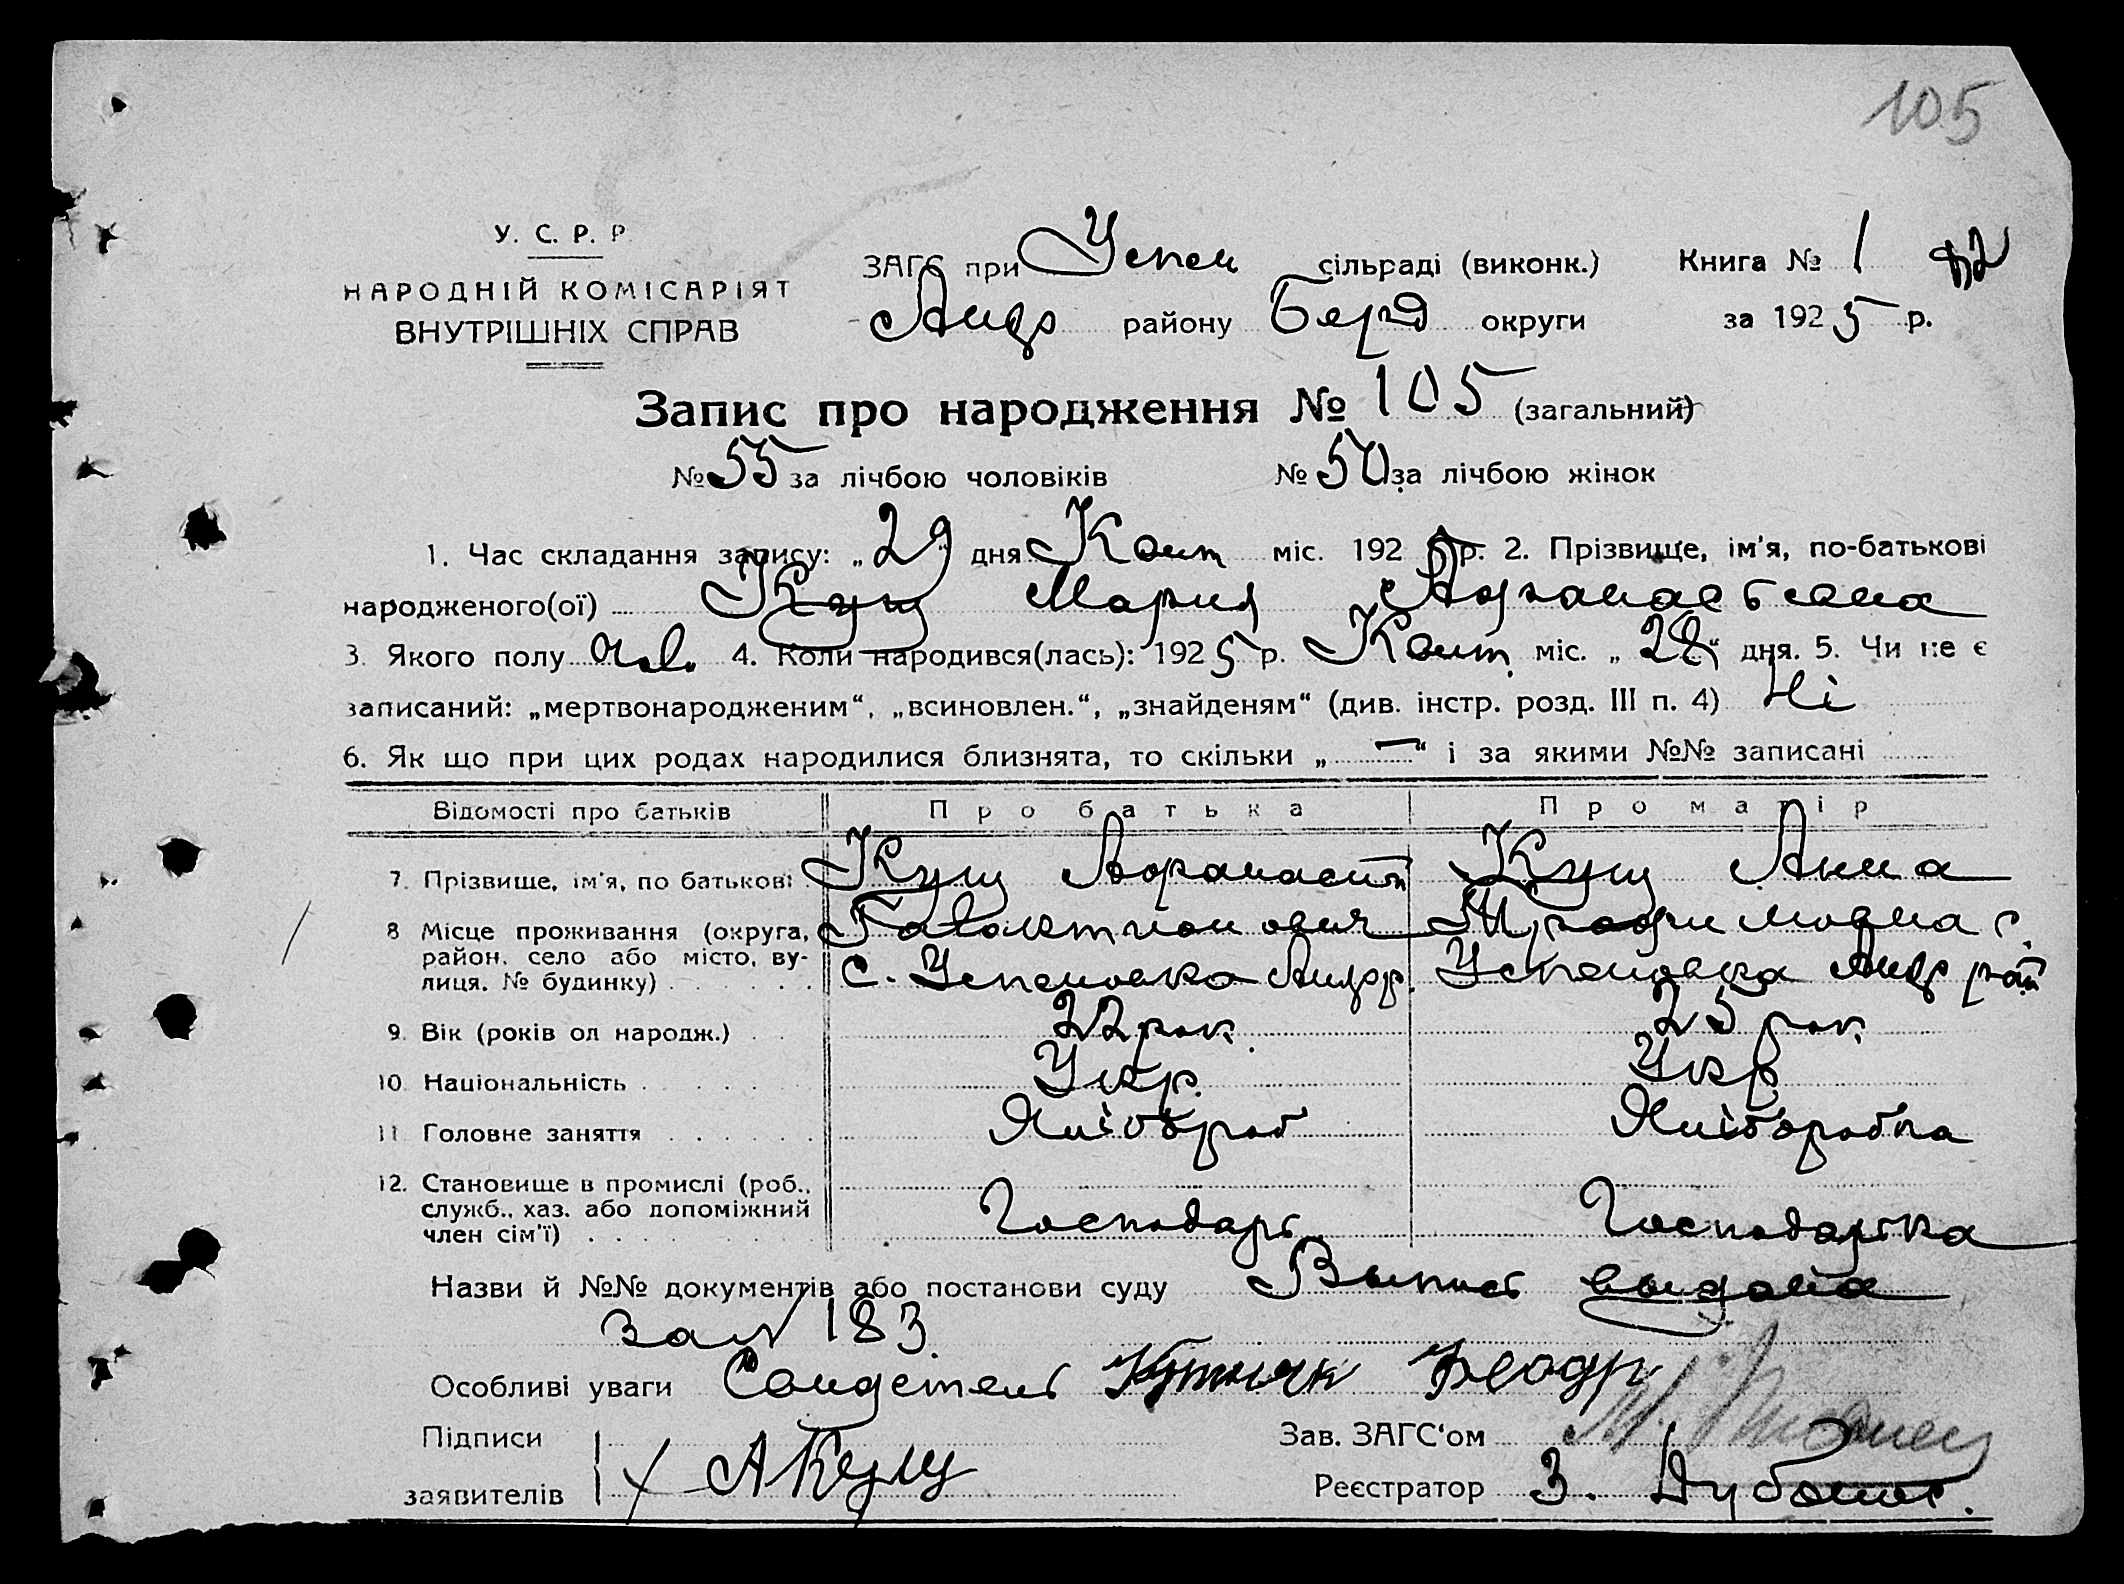 105
У. С. Р. Р.
НАРОДНІЙ КОМІСАРІЯТ
ВНУТРІШНІХ СПРАВ
ЗАГС при Успен сільраді (виконк.) Книга № 1
Андр району Берд округи за 1925 р.
Запис про народження № 105 (загальний)
№ 55 за лічбою чоловіків № 50 за лічбою жінок
1. Час складання запису: „29" дня міс. 1925 р. 2. Прізвище, ім'я, по-батькові
народженого(ої) Кущ Мария Афанасьевна
3. Якого полу 4. Коли народився(лась): 1925 р. міс. „28" дня. 5. Чи не є
записаний: „мертвонародженим", „всиновлен.", „знайденям" (див. інстр. розд. III п. 4) Ні
6. Як що при цих родах народилися близнята, то скільки „—" і за якими №№ записані
Відомості про батьків Про батька Про матір
7. Прізвище, ім'я, по батькові Кущ Афанасий Кущ Анна
8 Місце проживання (округа, Галактионович Трофимовна с.
район, село або місто, ву-
лиця, № будинку) с. Успеновка Андр. Успеновка Андр рай
9. Вік (років од народж.) 22 рок. 25 рок.
10. Національність Укр. Укр
11. Головне заняття Хлібороб Хліборобка
12. Становище в промислі (роб.,
служб., хаз. або допоміжний Господарь Господарька
член сім'ї)
Назви й №№ документів або постанови суду Выпись выдана
за № 183
Особливі уваги Свидетель Феодр
Підписи Зав. ЗАГС'ом
заявителів А Кущ Реєстратор З.